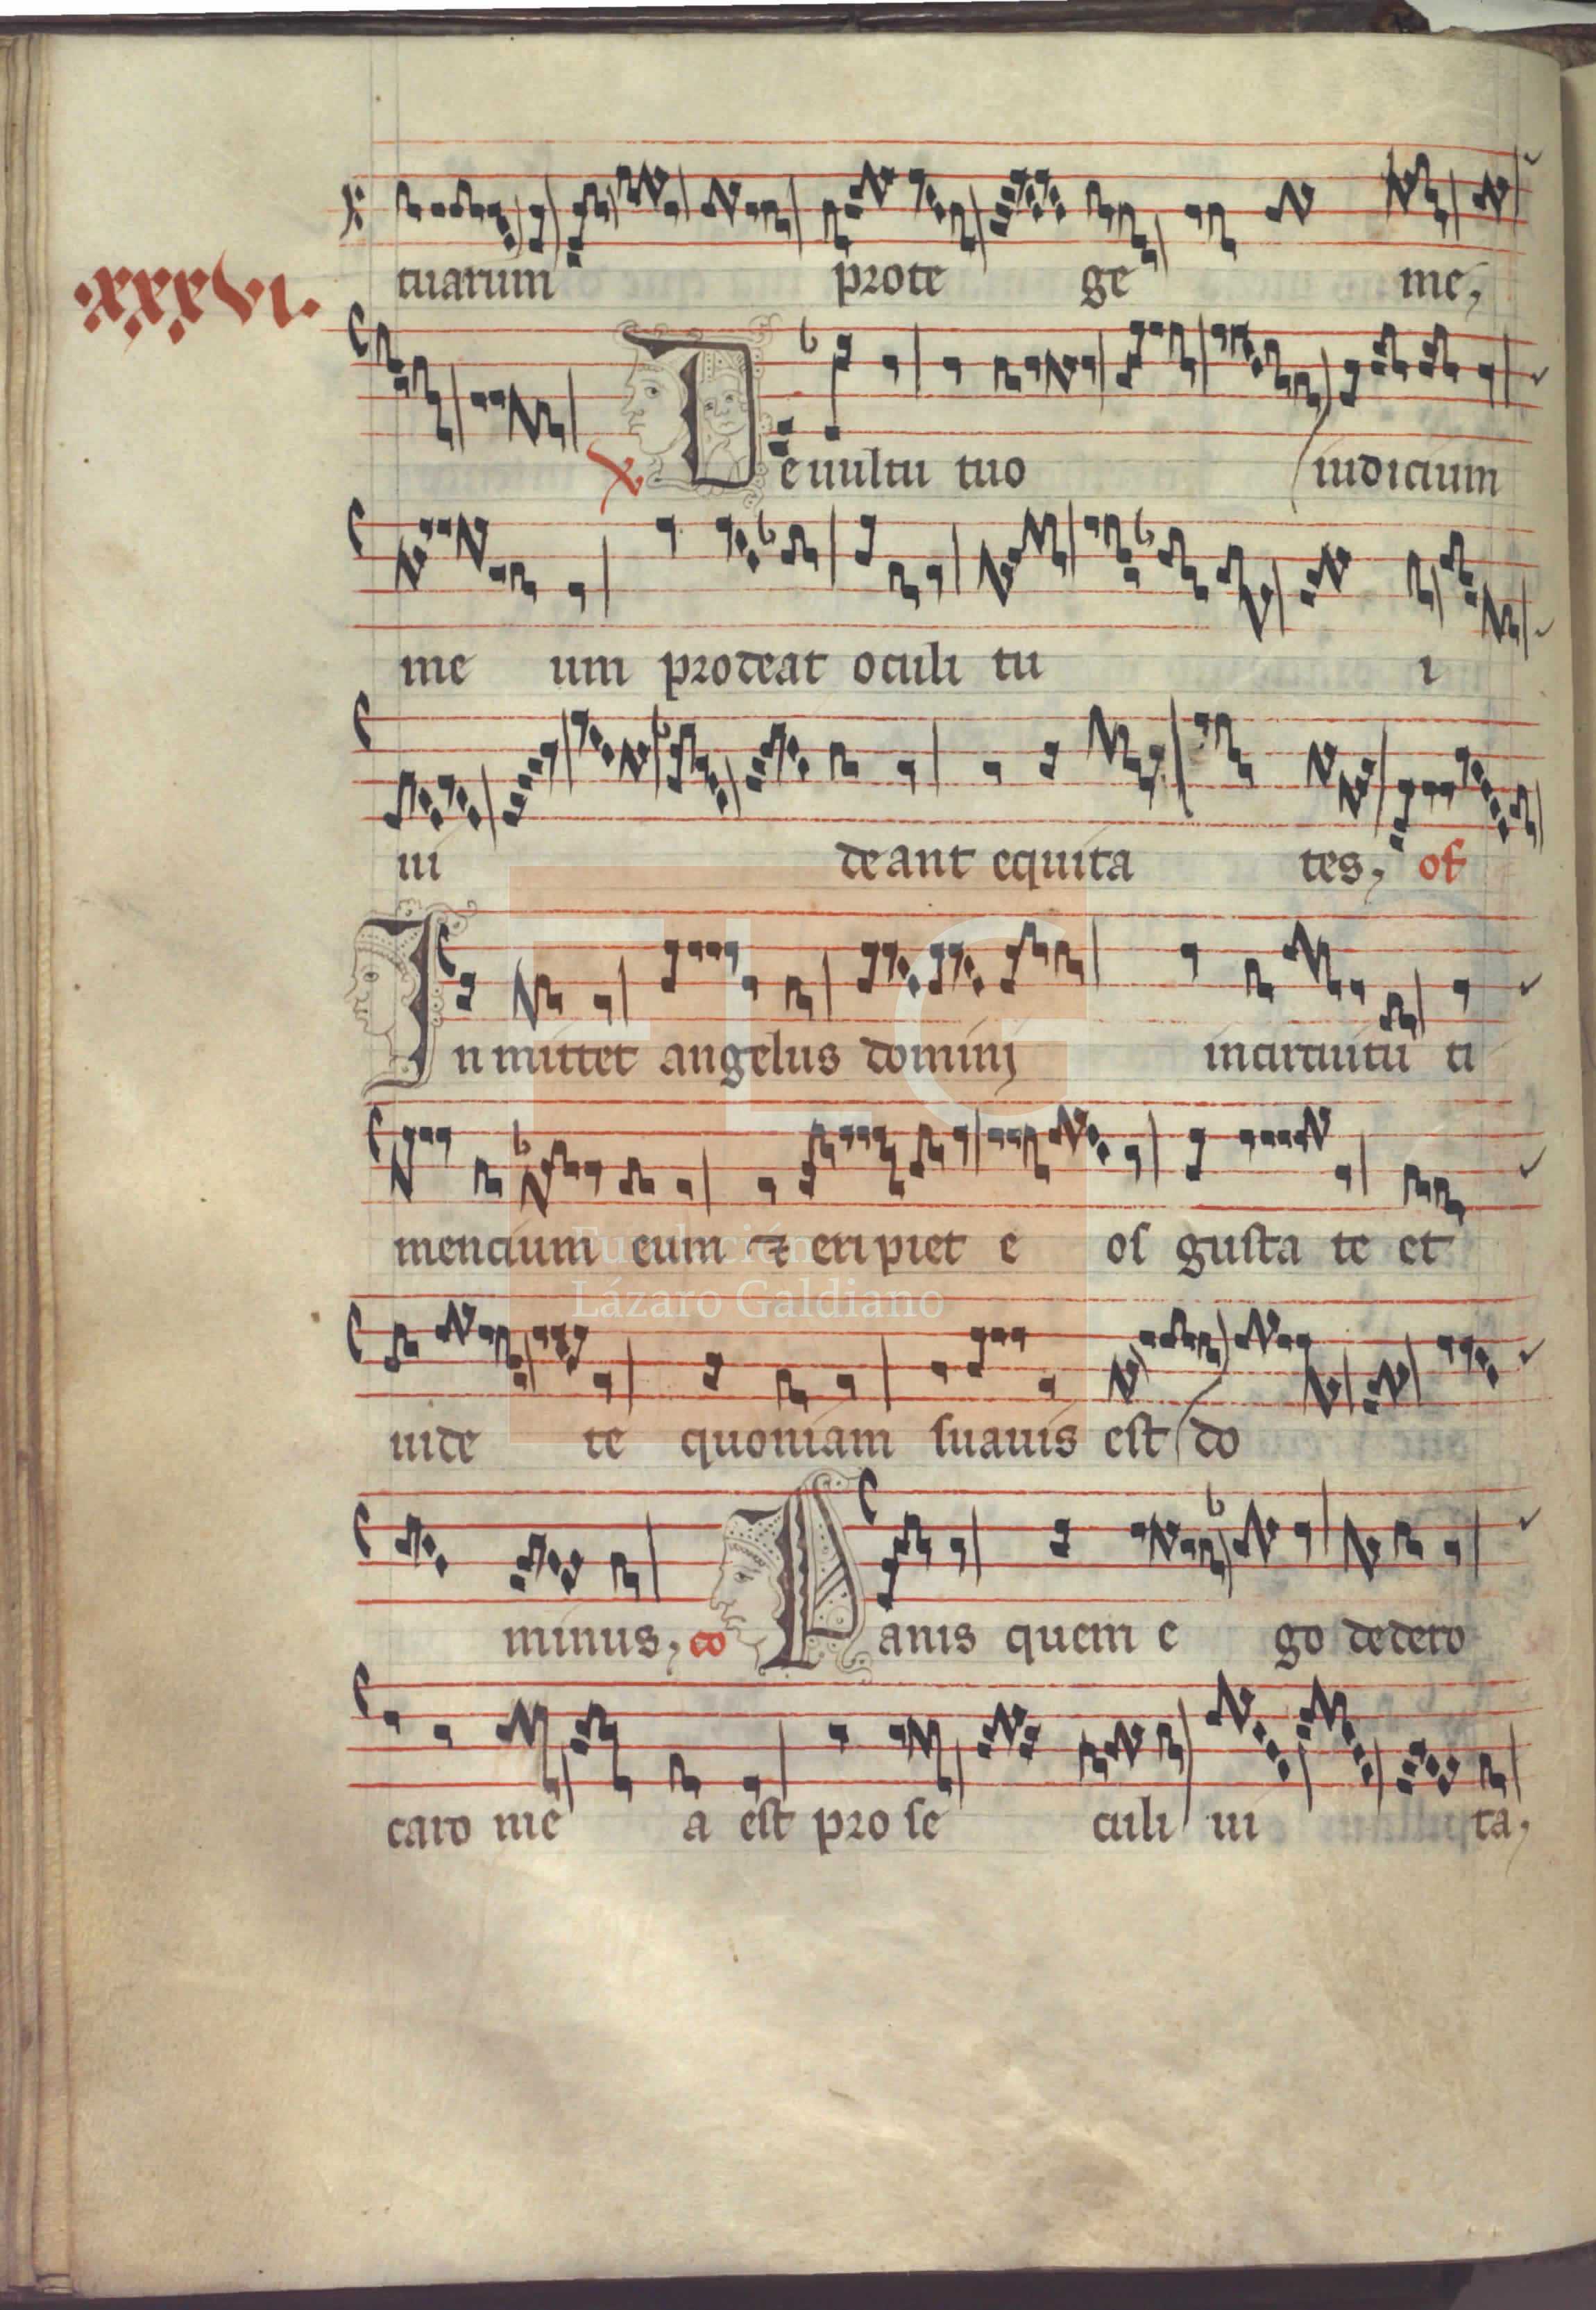 tuarum prote ge me,
.xxxvi.
℣ De uultu tuo iudicium
me um prodeat oculi tu i
ui deant equita tes, of
In mittet angelus dominj incircuitu ti
mencium eum ⁊ eripiet e os gusta te et
Fundación
Lázaro Galdiano
uide te quoniam suauis est do
minus, co Panis quem e go dedero
caro me a est pro se culi ui ta,